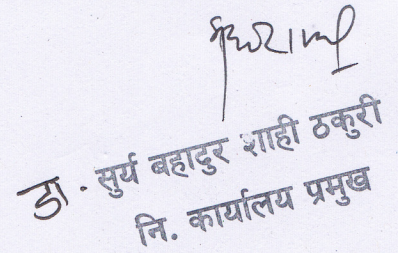 डा. सुर्य बहादुर शाही ठकुरी
नि. कार्यालय प्रमुख